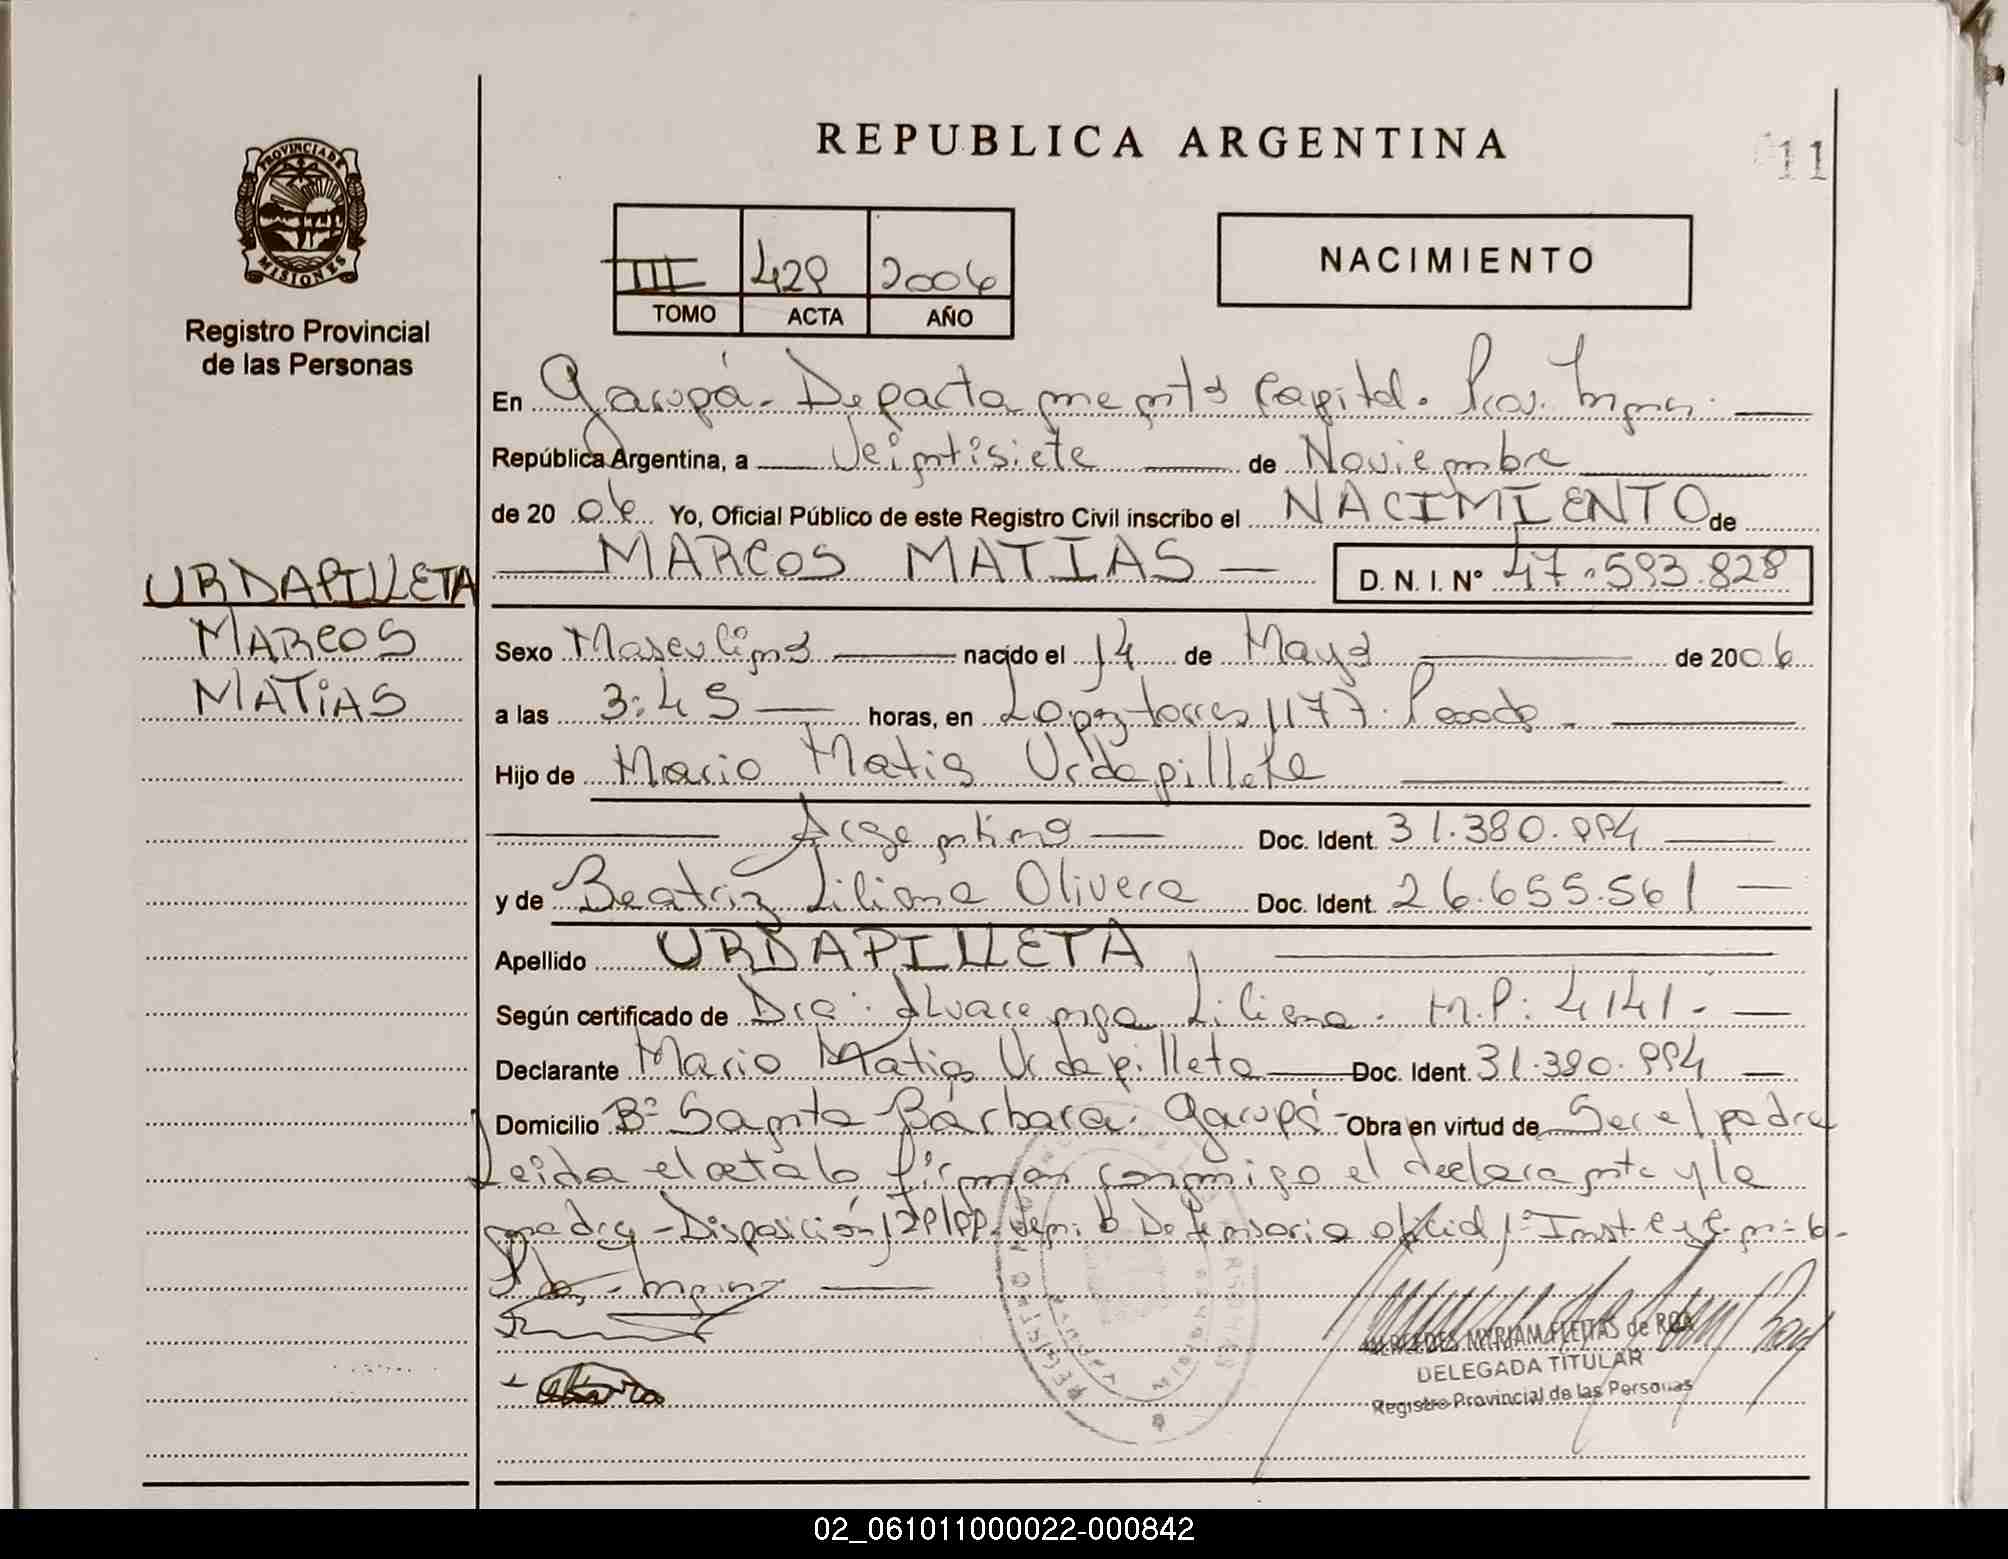 REPUBLICA ARGENTINA
11
PROVINCIA DE
MISIONES
Registro Provincial
de las Personas
III 429 2006
TOMO ACTA AÑO
NACIMIENTO
En Garupá - Departamento Capital. Prov. Mnes.
República Argentina, a Veintisiete de Noviembre
de 20 06 Yo, Oficial Público de este Registro Civil inscribo el NACIMIENTO de
MARCOS MATIAS D. N. I. N° 47.593.828
URDAPILLETA
MARCOS
MATIAS
Sexo Masculino nacido el 14 de Mayo de 2006
a las 3:45 horas, en Lopez torres 1177. Posadas
Hijo de Mario Matias Urdapilleta
Argentino Doc. Ident. 31.380.994
y de Beatriz Liliana Olivera Doc. Ident. 26.655.561
Apellido URDAPILLETA
Según certificado de Dra: Alvarenga Liliana. M.P: 4141.-
Declarante Mario Matias Urdapilleta Doc. Ident. 31.380.994
Domicilio B° Santa Bárbara. Garupá - Obra en virtud de Ser el padre
Leida el acta la firman conmigo el declarante y la
madre - Disposición Defensoria oficial 1° Inst.
MERCEDES MYRIAM FLEITAS de ROA
DELEGADA TITULAR
Registro Provincial de las Personas
02_061011000022-000842